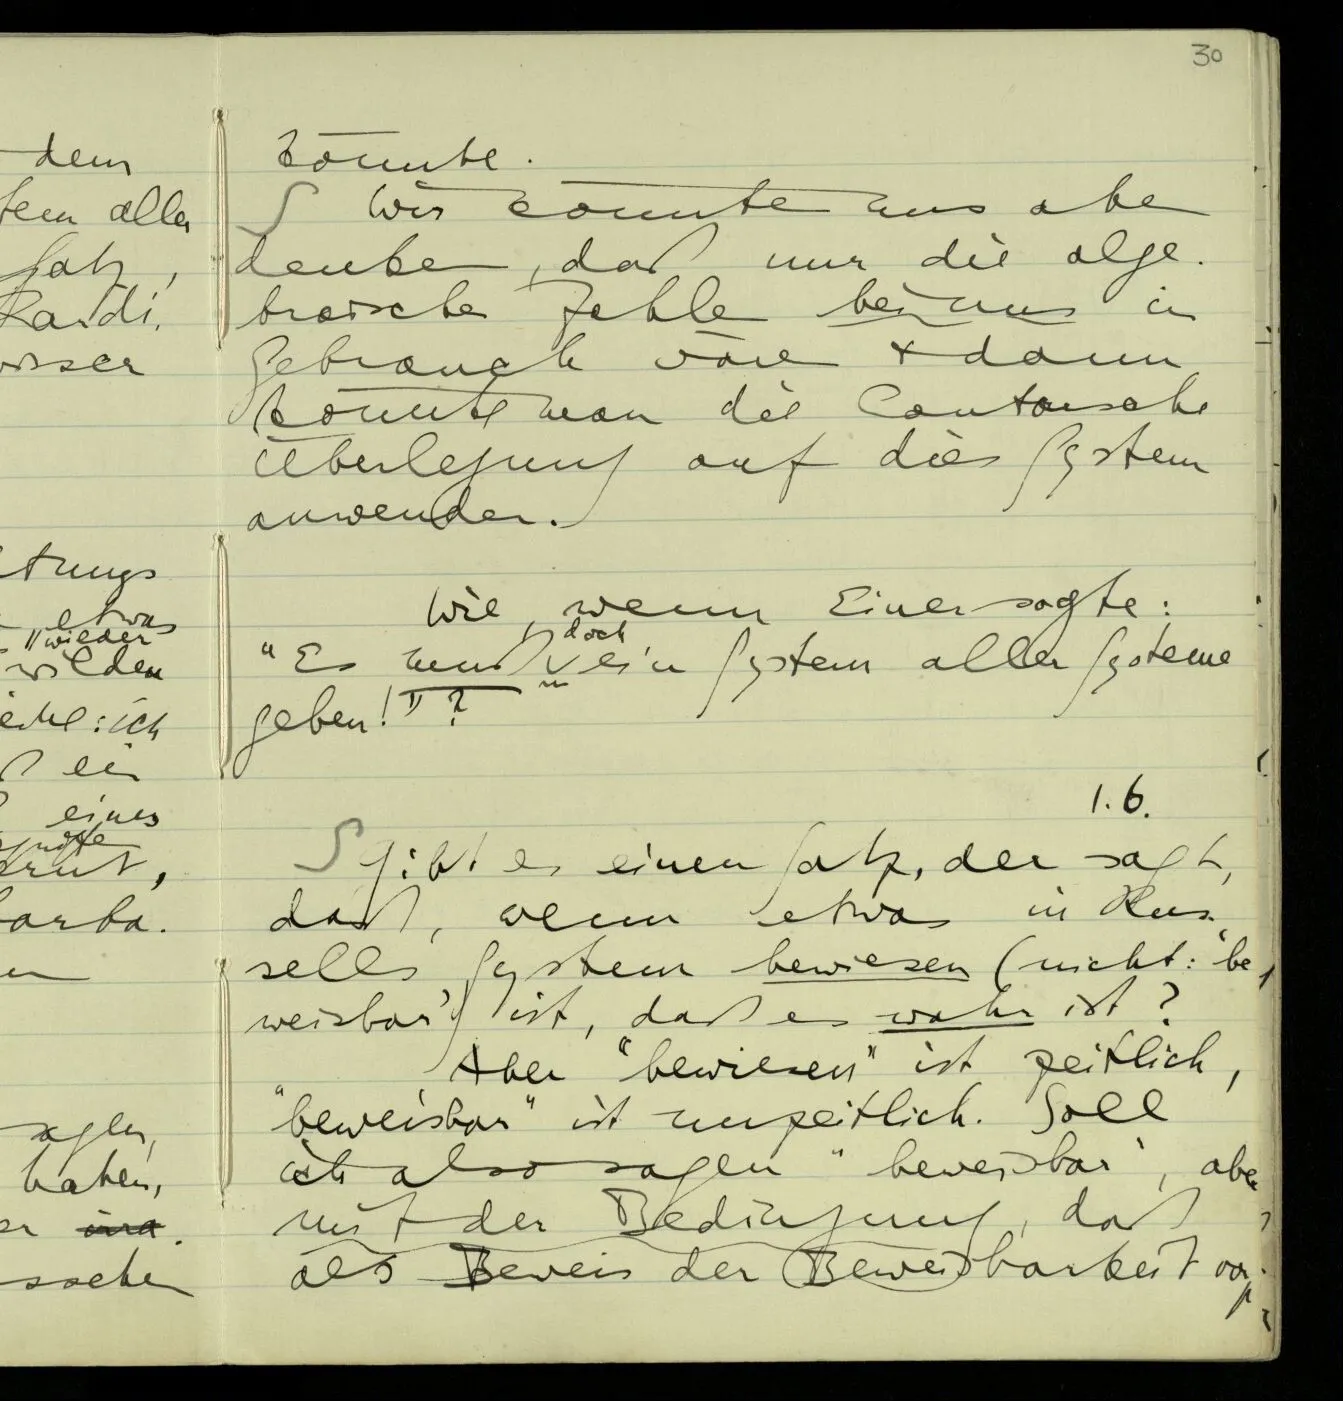 30
dem
tem aller
Satz,
Kardi,
etwas
"wieder
wilden
ich
ein
eines
barba.
haben,
könnte.
S Wir könnten uns aber
denken, daß nur die alge-
braische Zahlen bei uns in
Gebrauch wäre + dann
könnte man die Cantorsche
Überlegung auf dies System
anwenden.
Wie, wenn Einer sagte:
"Es muß doch ein System aller Systeme
geben!"?
1.6.
S Gibt es einen Satz, der sagt,
daß, wenn etwas in Rus-
sells System bewiesen (nicht: 'be
weisbar') ist, daß es wahr ist?
Aber "bewiesen" ist zeitlich,
"beweisbar" ist unzeitlich. Soll
ich also sagen "beweisbar", aber
mit der Bedingung, daß
als Beweis der Beweisbarkeit